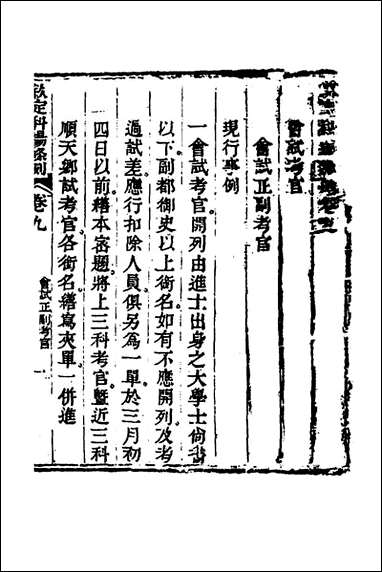 欽定科場條例卷九
會試考官
會試正副考官
現行事例
一會試考官開列由進士出身之大學士尙書
以下副都御史以上銜名如有不應開列及考
過試差應行扣除人員俱另爲一單於三月初
四日以前繕本密題將上三科考官曁近三科
順天鄉試考官各銜名繕寫夾單一併進
欽定科場條例 卷九 會試正副考官 一